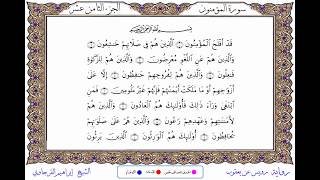 سورة المؤمنون
الجزء الثامن عشر
بِسْمِ اللَّهِ الرَّحْمَٰنِ الرَّحِيمِ
قَدْ أَفْلَحَ ٱلْمُؤْمِنُونَ ۝ ٱلَّذِينَ هُمْ فِي صَلَاتِهِمْ خَٰشِعُونَ ۝
وَٱلَّذِينَ هُمْ عَنِ ٱللَّغْوِ مُعْرِضُونَ ۝ وَٱلَّذِينَ هُمْ لِلزَّكَوٰةِ
فَٰعِلُونَ ۝ وَٱلَّذِينَ هُمْ لِفُرُوجِهِمْ حَٰفِظُونَ ۝ إِلَّا عَلَىٰ
أَزْوَٰجِهِمْ أَوْ مَا مَلَكَتْ أَيْمَٰنُهُمْ فَإِنَّهُمْ غَيْرُ مَلُومِينَ ۝ فَمَنِ
ٱبْتَغَىٰ وَرَآءَ ذَٰلِكَ فَأُوْلَٰٓئِكَ هُمُ ٱلْعَادُونَ ۝ وَٱلَّذِينَ هُمْ
لِأَمَٰنَٰتِهِمْ وَعَهْدِهِمْ رَٰعُونَ ۝ وَٱلَّذِينَ هُمْ عَلَىٰ صَلَوَٰتِهِمْ
يُحَافِظُونَ ۝ أُوْلَٰٓئِكَ هُمُ ٱلْوَٰرِثُونَ ۝ ٱلَّذِينَ يَرِثُونَ
رواية رويس عن يعقوب
الشيخ إبراهيم الفرجاوي